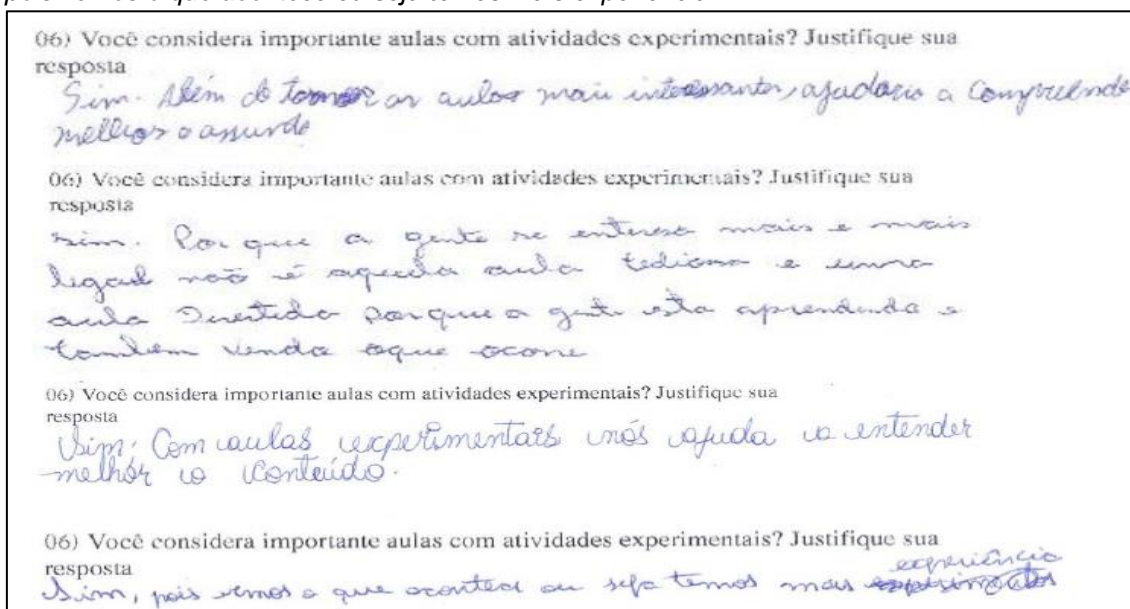 06) Você considera importante aulas com atividades experimentais? Justifique sua
resposta
Sim. Além de tornar as aulas mais interessantes, ajudaria a compreender
melhor o assunto
06) Você considera importante aulas com atividades experimentais? Justifique sua
resposta
sim. Por que a gente se enteresa mais e mais
legal não é aquela aula tediosa e uma
aula Divertida Porque a gente esta aprendendo e
também vendo oque ocorre
06) Você considera importante aulas com atividades experimentais? Justifique sua
resposta
Sim, Com aulas experimentais nós ajuda a entender
melhor o Conteúdo.
06) Você considera importante aulas com atividades experimentais? Justifique sua
resposta
Sim, pois vemos o que acontece ou seja temos mais experiência